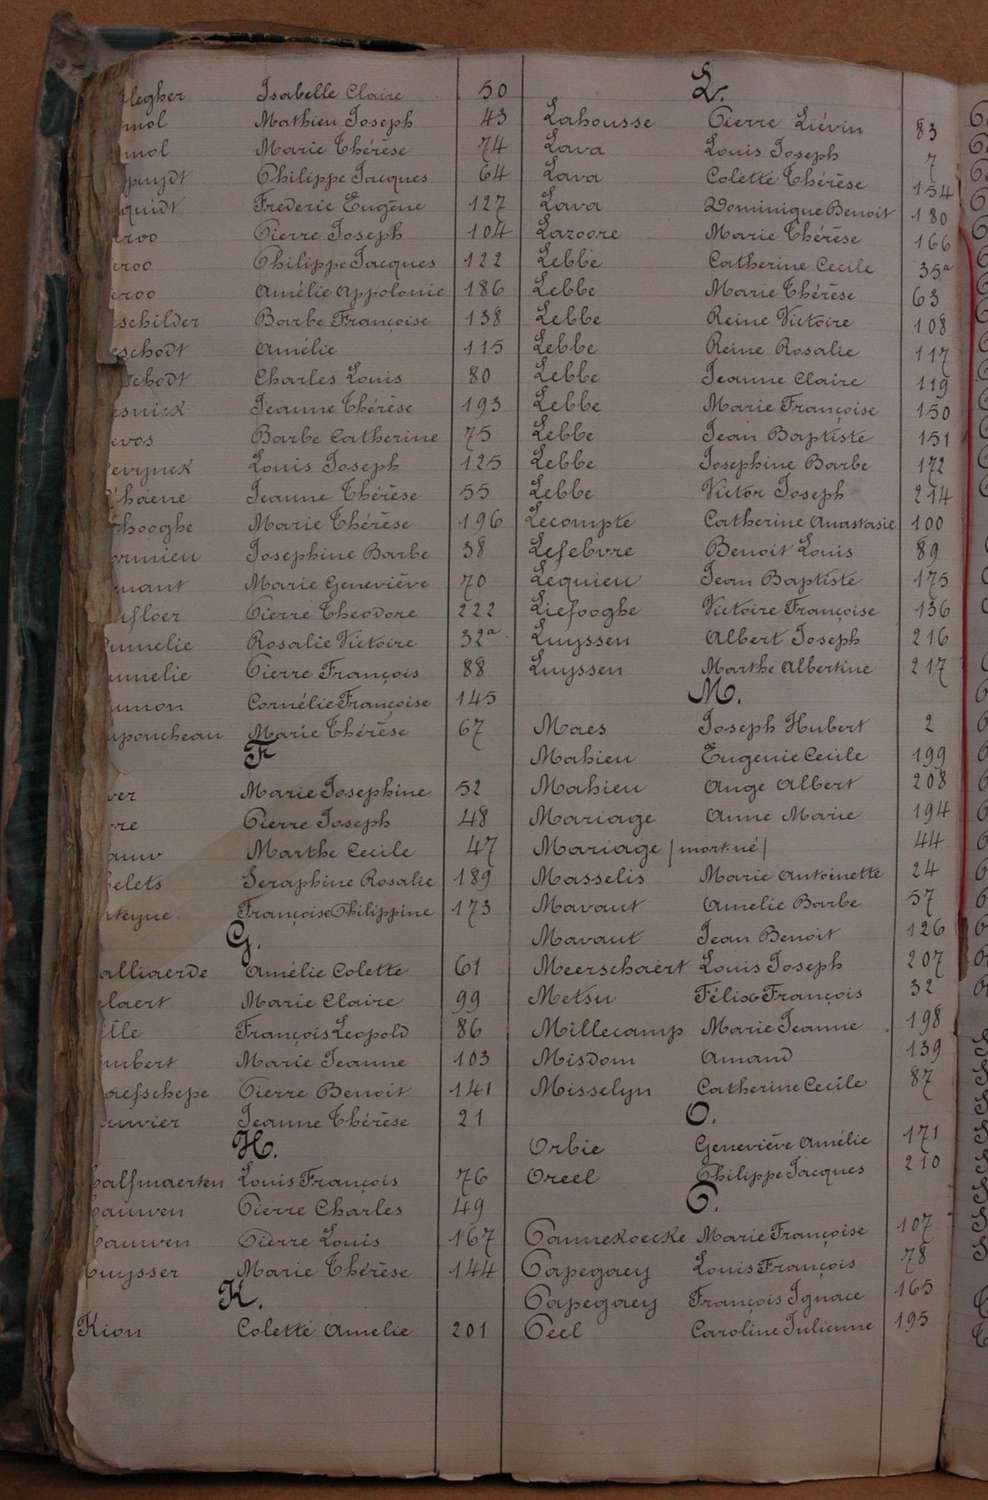 legher Isabelle Claire 50
mol Mathieu Joseph 43
mol Marie Thérèse 74
puydt Philippe Jacques 64
quidt Frederic Eugène 127
roo Pierre Joseph 104
roo Philippe Jacques 122
roo Amélie Appolonie 186
schilder Barbe Françoise 138
schodt Amélie 115
schodt Charles Louis 80
snick Jeanne Thérèse 193
evos Barbe Catherine 75
evrynck Louis Joseph 125
haene Jeanne Thérèse 55
hooghe Marie Thérèse 196
ormieu Josephine Barbe 38
mant Marie Geneviève 70
ufloer Pierre Theodore 222
umelie Rosalie Victoire 32a
umelie Pierre François 88
umon Cornélie Françoise 145
uponcheau Marie Thérèse 67
F
ver Marie Josephine 52
vre Pierre Joseph 48
auw Marthe Cecile 47
elets Seraphine Rosalie 189
nteyne Françoise Philippine 173
G.
alliaerde Amélie Colette 61
laert Marie Claire 99
ille François Leopold 86
mbert Marie Jeanne 103
raefschepe Pierre Benoit 141
uvier Jeanne Thérèse 21
H.
halfmaerten Louis François 76
hauwen Pierre Charles 49
hauwen Pierre Louis 167
huysser Marie Thérèse 144
K.
Kion Colette Amelie 201
L.
Lahousse Pierre Liévin 83
Lava Louis Joseph 7
Lava Colette Thérèse 154
Lava Dominique Benoit 180
Lazoore Marie Thérèse 166
Lebbe Catherine Cecile 35a
Lebbe Marie Thérèse 63
Lebbe Reine Victoire 108
Lebbe Reine Rosalie 117
Lebbe Jeanne Claire 119
Lebbe Marie Françoise 150
Lebbe Jean Baptiste 151
Lebbe Josephine Barbe 172
Lebbe Victor Joseph 214
Lecompte Catherine Anastasie 100
Lefebvre Benoit Louis 89
Lequieu Jean Baptiste 175
Liefooghe Victoire Françoise 136
Luyssen Albert Joseph 216
Luyssen Marthe Albertine 217
M.
Maes Joseph Hubert 2
Mahieu Eugenie Cecile 199
Mahieu Ange Albert 208
Mariage Anne Marie 194
Mariage / mort né / 44
Masselis Marie Antoinette 24
Mavaut Amelie Barbe 57
Mavaut Jean Benoit 126
Meerschaert Louis Joseph 207
Metsu Félix François 32
Millecamp Marie Jeanne 198
Misdom Amand 139
Misselyn Catherine Cecile 87
O.
Orbie Geneviève Amélie 171
Oreel Philippe Jacques 210
P.
Pannekoecke Marie Françoise 107
Papegaey Louis François 78
Papegaey François Ignace 165
Peel Caroline Julienne 195